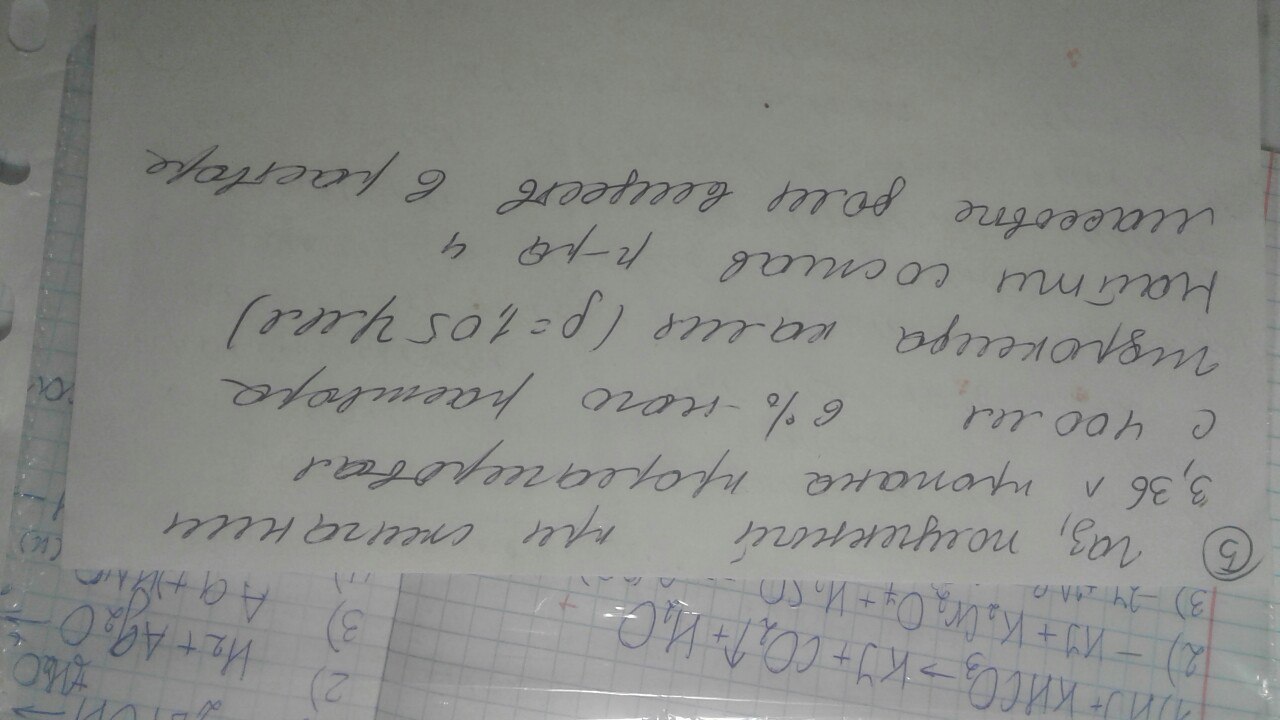 5) Газ, полученный при сжигании
3,36 л пропана прореагировал
с 400 мл 6%-ного раствора
гидроксида калия (ρ=1,05 г/мл)
Найти состав р-ра и
массовые доли веществ в растворе
3)
2) - KJ + K₂Cr₂O₇ + H₂SO
HJ + KHCO₃ → KJ + CO₂↑ + H₂O
3) Ag +
H₂ + Ag₂O
2)
+H₂O